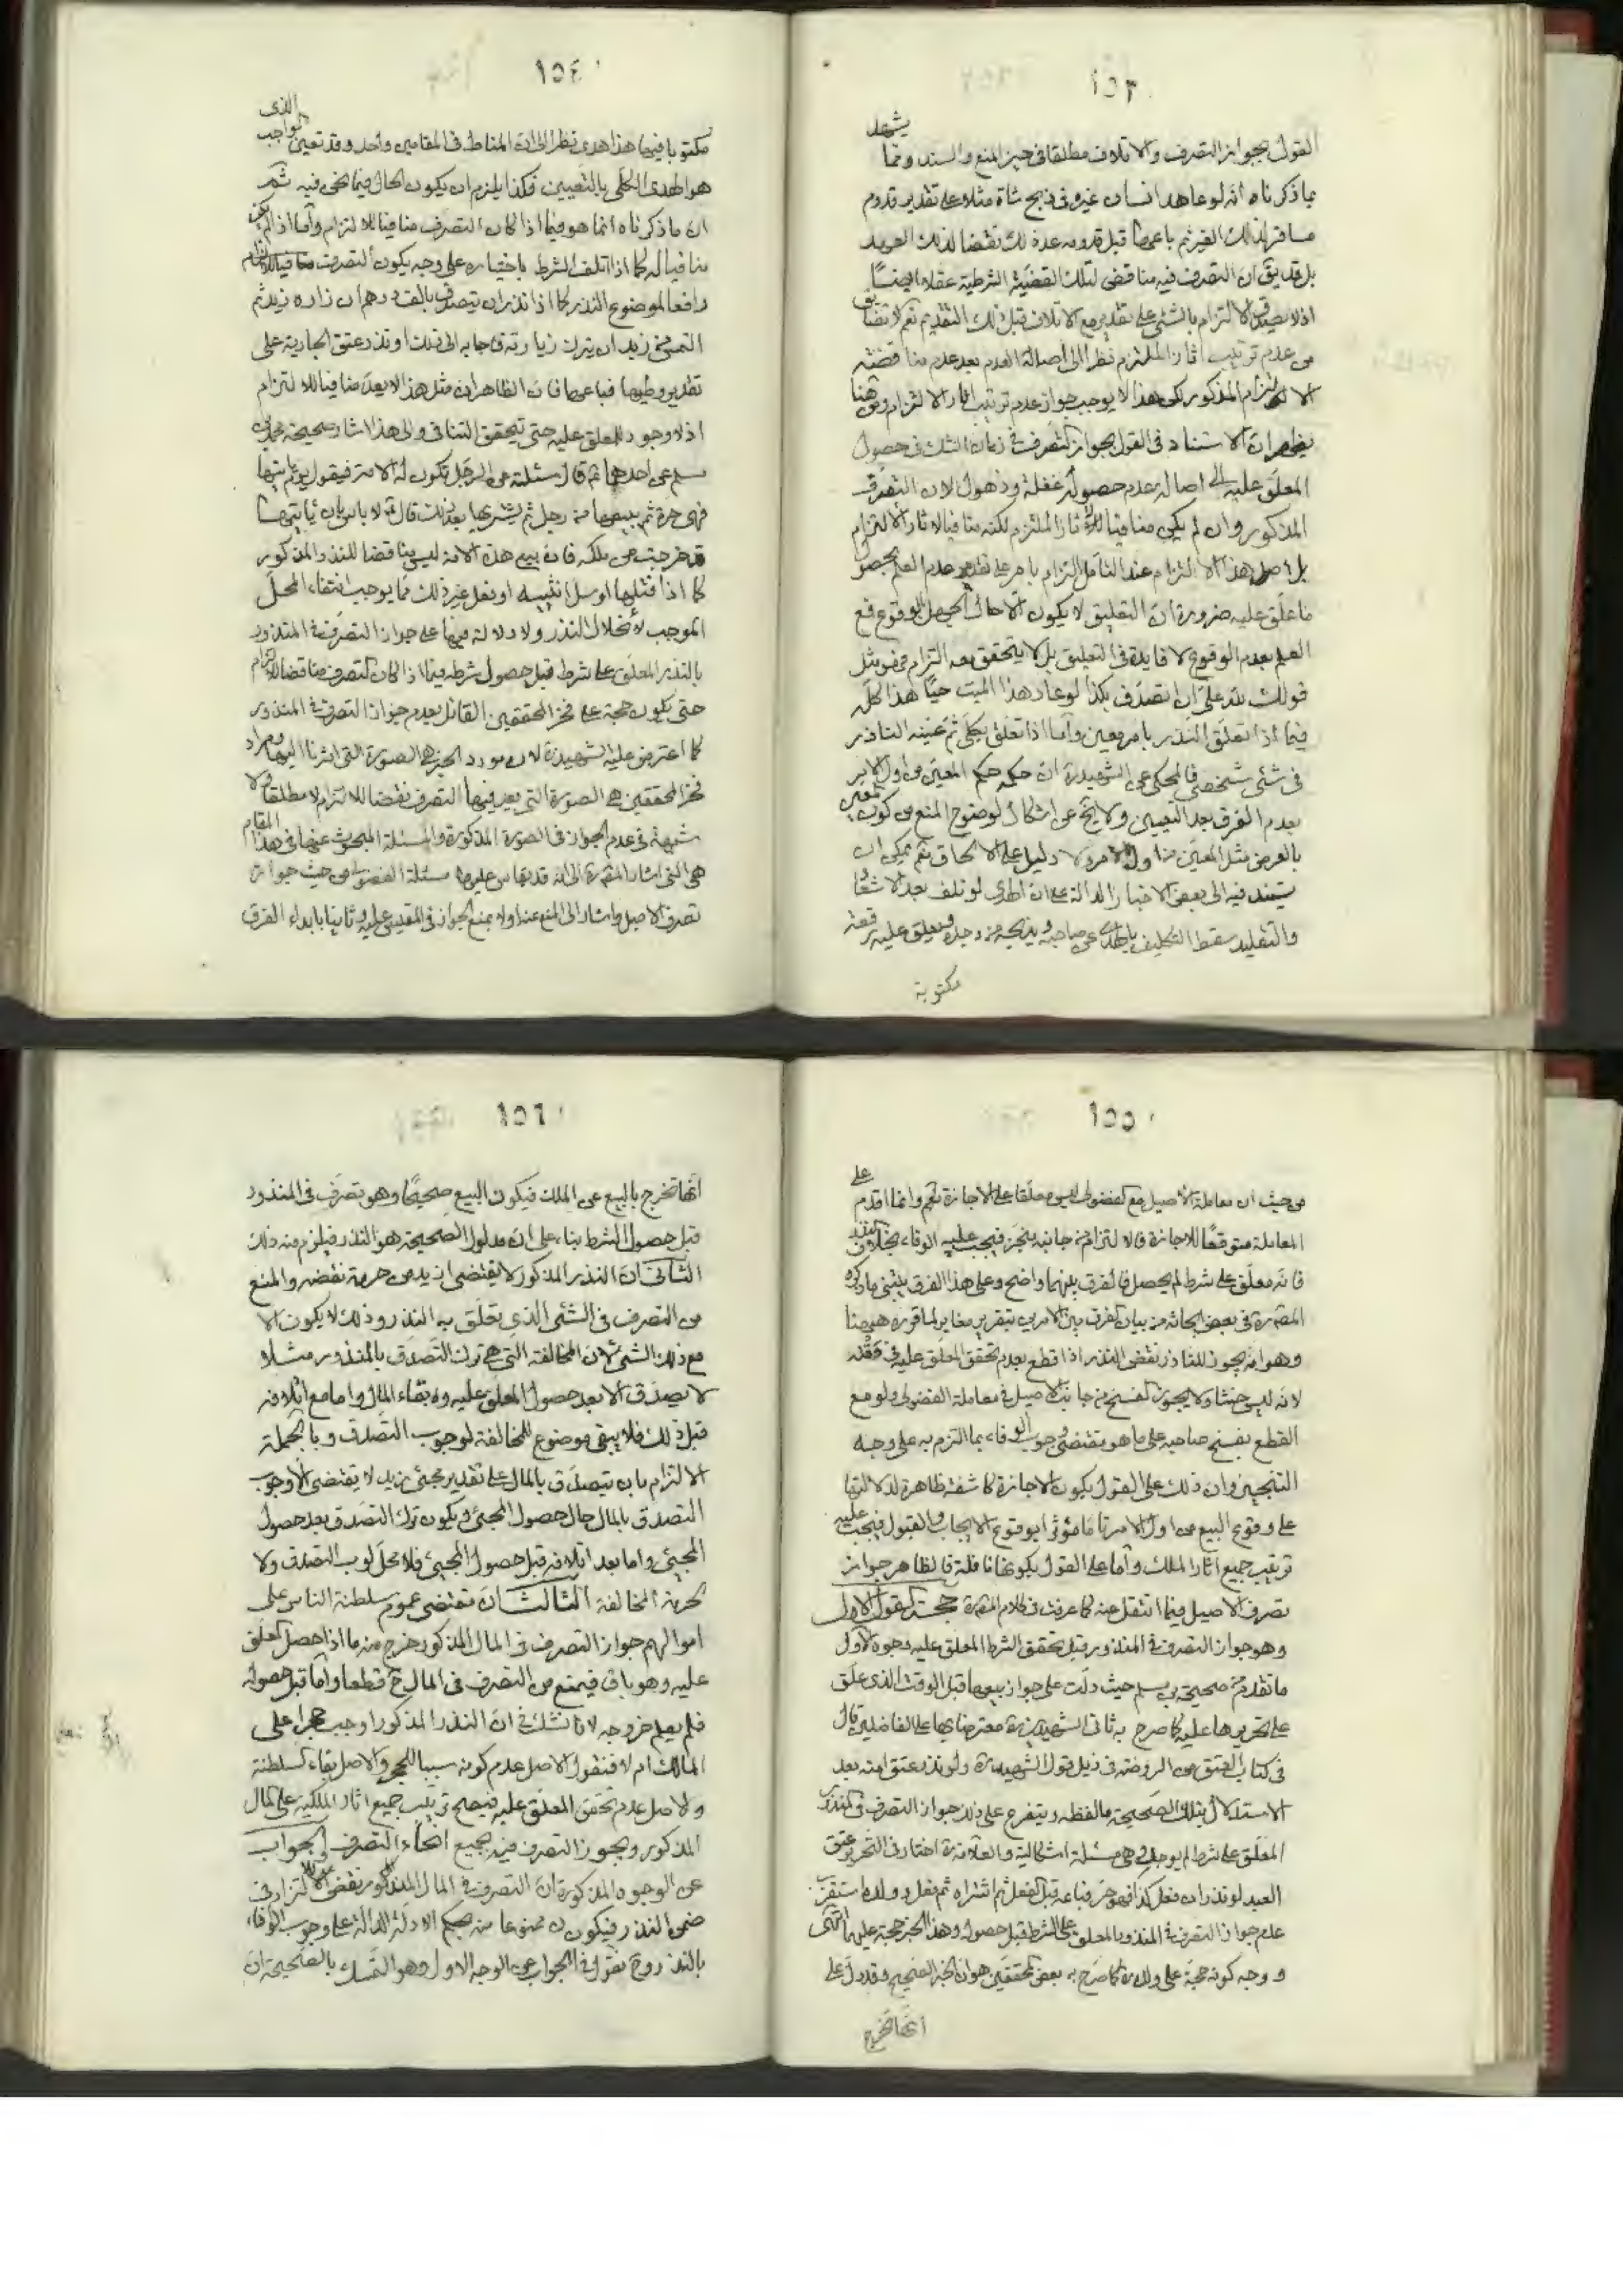 ١٥٣
القول بجواز التصرف والاتلاف مطلقا فى حيز المنع والسند ومما يشهد
بما ذكرناه انه لو عاهد انسان غيره فى ذبح شاة مثلا على تقدير قدوم
مسافر لذلك الغير ثم باعها قبل قدومه عد ذلك نقضا لذلك العهد
بل قد يق ان التصرف فيه مناقض لتلك القضية الشرطية عقلا ايضا
اذ لا يصدق الالتزام بالشئ على تقدير مع الاتلاف قبل ذلك التقدير نعم لا تضايق
من عدم ترتيب اثار الملتزم نظرا الى اصالة العدم بعد عدم مناقضته
الالتزام المذكور لكن هذا لا يوجب جواز عدم ترتيب اثار الالتزام ومن هنا
يظهر ان الاستناد فى القول بجواز التصرف فى زمان الشك فى حصول
المعلق عليه الى اصالة عدم حصوله غفلة وذهول لان التصرف
المذكور وان لم يكن منافيا لاثار الملتزم لكنه مناف لاثار الالتزام
بل اصل هذا الالتزام عند التأمل التزام بامر على تقدير عدم العلم بحصول
ما علق عليه ضرورة ان التعليق لا يكون الا حال الجهل بالوقوع فمع
العلم بعدم الوقوع لا فايدة فى التعليق بل لا يتحقق معه التزام فهو مثل
قولك لله على ان اتصدق بكذا لو عاد هذا الميت حيا هذا كله
فيما اذا تعلق النذر بامر معين واما اذا تعلق بكلى ثم عينه الناذر
فى شئ شخصى فالمحكى عن الشهيد ره ان حكمه حكم المعين من اول الامر
بعدم الفرق بعد التعيين ولا يخ عن اشكال لوضوح المنع من كون المعين
بالعرض مثل المعين من اول الامر ولا دليل على الالحاق نعم يمكن ان
يستند فيه الى بعض الاخبار الدالة على ان الهدى لو تلف بعد الاشعار
والتقليد سقط التكليف بالهدى عن صاحبه ويذبحه من وجده ويعلق عليه رقعة
مكتوبة
١٥٤
مكتوبا فيها هذا هدى نظرا الى ان المناط فى المقامين واحد وقد تعين الواجب الذى
هو الهدى الكلى بالتعيين فكذا يلزم ان يكون الحال فيما نحن فيه ثم
ان ما ذكرناه انما هو فيما اذا كان التصرف منافيا للالتزام واما اذا لم يكن
منافيا له كما اذا اتلف الشرط باختياره على وجه يكون التصرف
رافعا لموضوع النذر كما اذا نذر ان يتصدق بالف درهم ان زاره زيد ثم
التمس من زيد ان يترك زيارته فاجابه الى ذلك او نذر عتق الجارية على
تقدير وطيها فباعها فان الظاهر ان مثل هذا لا يعد منافيا للالتزام
اذ لا وجود للمعلق عليه حتى يتحقق التنافى والى هذا اشار صحيحة محمد بن
مسلم عن احدهما ع قال سئلته عن الرجل تكون له الامة فيقول يوم ياتيها
فهى حرة ثم يبيعها من رجل ثم يشتريها بعد ذلك قال ع لا باس بان ياتيها
قد خرجت من ملكه فان بيع هذه الامة ليس مناقضا للنذر المذكور
كما اذا قتلها او سل انثييه او فعل غير ذلك مما يوجب انتفاء المحل
الموجب لانحلال النذر ولا دلالة فيها على جواز التصرف فى المنذور
بالنذر المعلق على شرط قبل حصول شرطه فيما اذا كان التصرف مناقضا للالتزام
حتى يكون حجة على فخر المحققين القائل بعدم جواز التصرف فى المنذور
كما اعترض عليه الشهيد ره لان مورد الخبر هى الصورة التى اشرنا اليها ومراد
فخر المحققين هى الصورة التى يعد فيها التصرف نقضا للالتزام لا مطلقا ولا
شبهة فى عدم الجواز فى الصورة المذكورة والمسئلة المبحوث عنها فى هذا المقام
هى التى اشار المص ره الى انه قد يقاس عليها مسئلة الفضولى من حيث جواز
تصرف الاصيل واشار الى المنع عنه اولا بمنع الجواز فى المقيس عليه وثانيا بابداء الفرق
١٥٥
من حيث ان معاملة الاصيل مع الفضولى ليس معلقا على الاجازة نعم وانما اقدم على
المعاملة متوقعا للاجازة فالالتزام من جانبه منجز فيجب عليه الوفاء بخلاف النذر
فانه معلق على شرط لم يحصل فالفرق بينهما واضح وعلى هذا الفرق يبتنى ما ذكره
المص ره فى بعض ابحاثه من بيان الفرق بين الامرين بتقرير مغاير لما قرره هيهنا
وهو انه يجوز للناذر نقض النذر اذا قطع بعدم تحقق المعلق عليه فى وقته
لانه ليس حنثا ولا يجوز الفسخ من جانب الاصيل فى معاملة الفضولى ولو مع
القطع بفسخ صاحبه على ما هو مقتضى وجوب الوفاء بما التزم به على وجه
التنجيز وان ذلك على القول بكون الاجازة كاشفة ظاهرة لدلالتها
على وقوع البيع من اول الامر تاما مؤثرا بوقوع الايجاب والقبول فيجب عليه
ترتيب جميع اثار الملك واما على القول بكونها ناقلة فالظاهر جواز
تصرف الاصيل فيما انتقل عنه كما عرفت فى كلام المص ره حجة القول الاول
وهو جواز التصرف فى المنذور قبل تحقق الشرط المعلق عليه وجوه الاول
ما تقدم من صحيحة بن مسلم حيث دلت على جواز بيعها قبل الوقت الذى علق
على تحريرها عليه كما صرح به ثانى الشهيدين ره معترضا بها على الفاضلين قال
فى كتاب العتق من الروضة فى ذيل قول الشهيد ره ولو نذر عتق امته بعد
الاستدلال بتلك الصحيحة ما لفظه ويتفرع على ذلك جواز التصرف فى المنذور
المعلق على شرط لم يوجد وهى مسئلة اشكالية والعلامة ره اختار فى التحرير عتق
العبد لو نذر ان فعل كذا فهو حر فباعه قبل الفعل ثم اشتراه ثم فعل وولده استقرب
عدم جواز التصرف فى المنذور المعلق على الشرط قبل حصوله وهذا الخبر حجة عليهما انتهى
ووجه كونه حجة على ولده ره كما صرح به بعض المحققين هو ان الخبر الصحيح قد دل على
انها تخرج
١٥٦
انها تخرج بالبيع عن الملك فيكون البيع صحيحا وهو تصرف فى المنذور
قبل حصول الشرط بناء على ان مدلول الصحيحة هو النذر فيلزم منه ذلك
الثانى ان النذر المذكور لا يقتضى ازيد من حرمة نقضه والمنع
من التصرف فى الشئ الذى تعلق به النذر وذلك لا يكون الا
مع ذلك الشئ لان المخالفة التى هى ترك التصدق بالمنذور مثلا
لا يصدق الا بعد حصول المعلق عليه وبقاء المال واما مع اتلافه
قبل ذلك فلا يبقى موضوع للمخالفة لوجوب التصدق وبالجملة
الالتزام بان يتصدق بالمال على تقدير مجئ زيد لا يقتضى الا وجوب
التصدق بالمال حال حصول المجئ ويكون ترك التصدق بعد حصول
المجئ واما بعد اتلافه قبل حصول المجئ فلا محل لوجوب التصدق ولا
لحرمة المخالفة الثالث ان مقتضى عموم سلطنة الناس على
اموالهم جواز التصرف فى المال المذكور خرج منه ما اذا حصل المعلق
عليه وهو باق فيمنع من التصرف فى المال ح قطعا واما قبل حصوله
فلم يعلم خروجه لانا نشك فى ان النذر المذكور اوجب حجرا على
المالك ام لا فنقول الاصل عدم كونه سببا للحجر والاصل بقاء السلطنة
والاصل عدم تحقق المعلق عليه فيصح ترتيب جميع اثار الملكية على المال
المذكور ويجوز التصرف فيه بجميع انحاء التصرف والجواب
عن الوجوه المذكورة ان التصرف فى المال المذكور نقض للالتزام فى
ضمن النذر فيكون ممنوعا منه بحكم الادلة الدالة على وجوب الوفاء
بالنذر وح نقول فى الجواب عن الوجه الاول وهو التمسك بالصحيحة ان